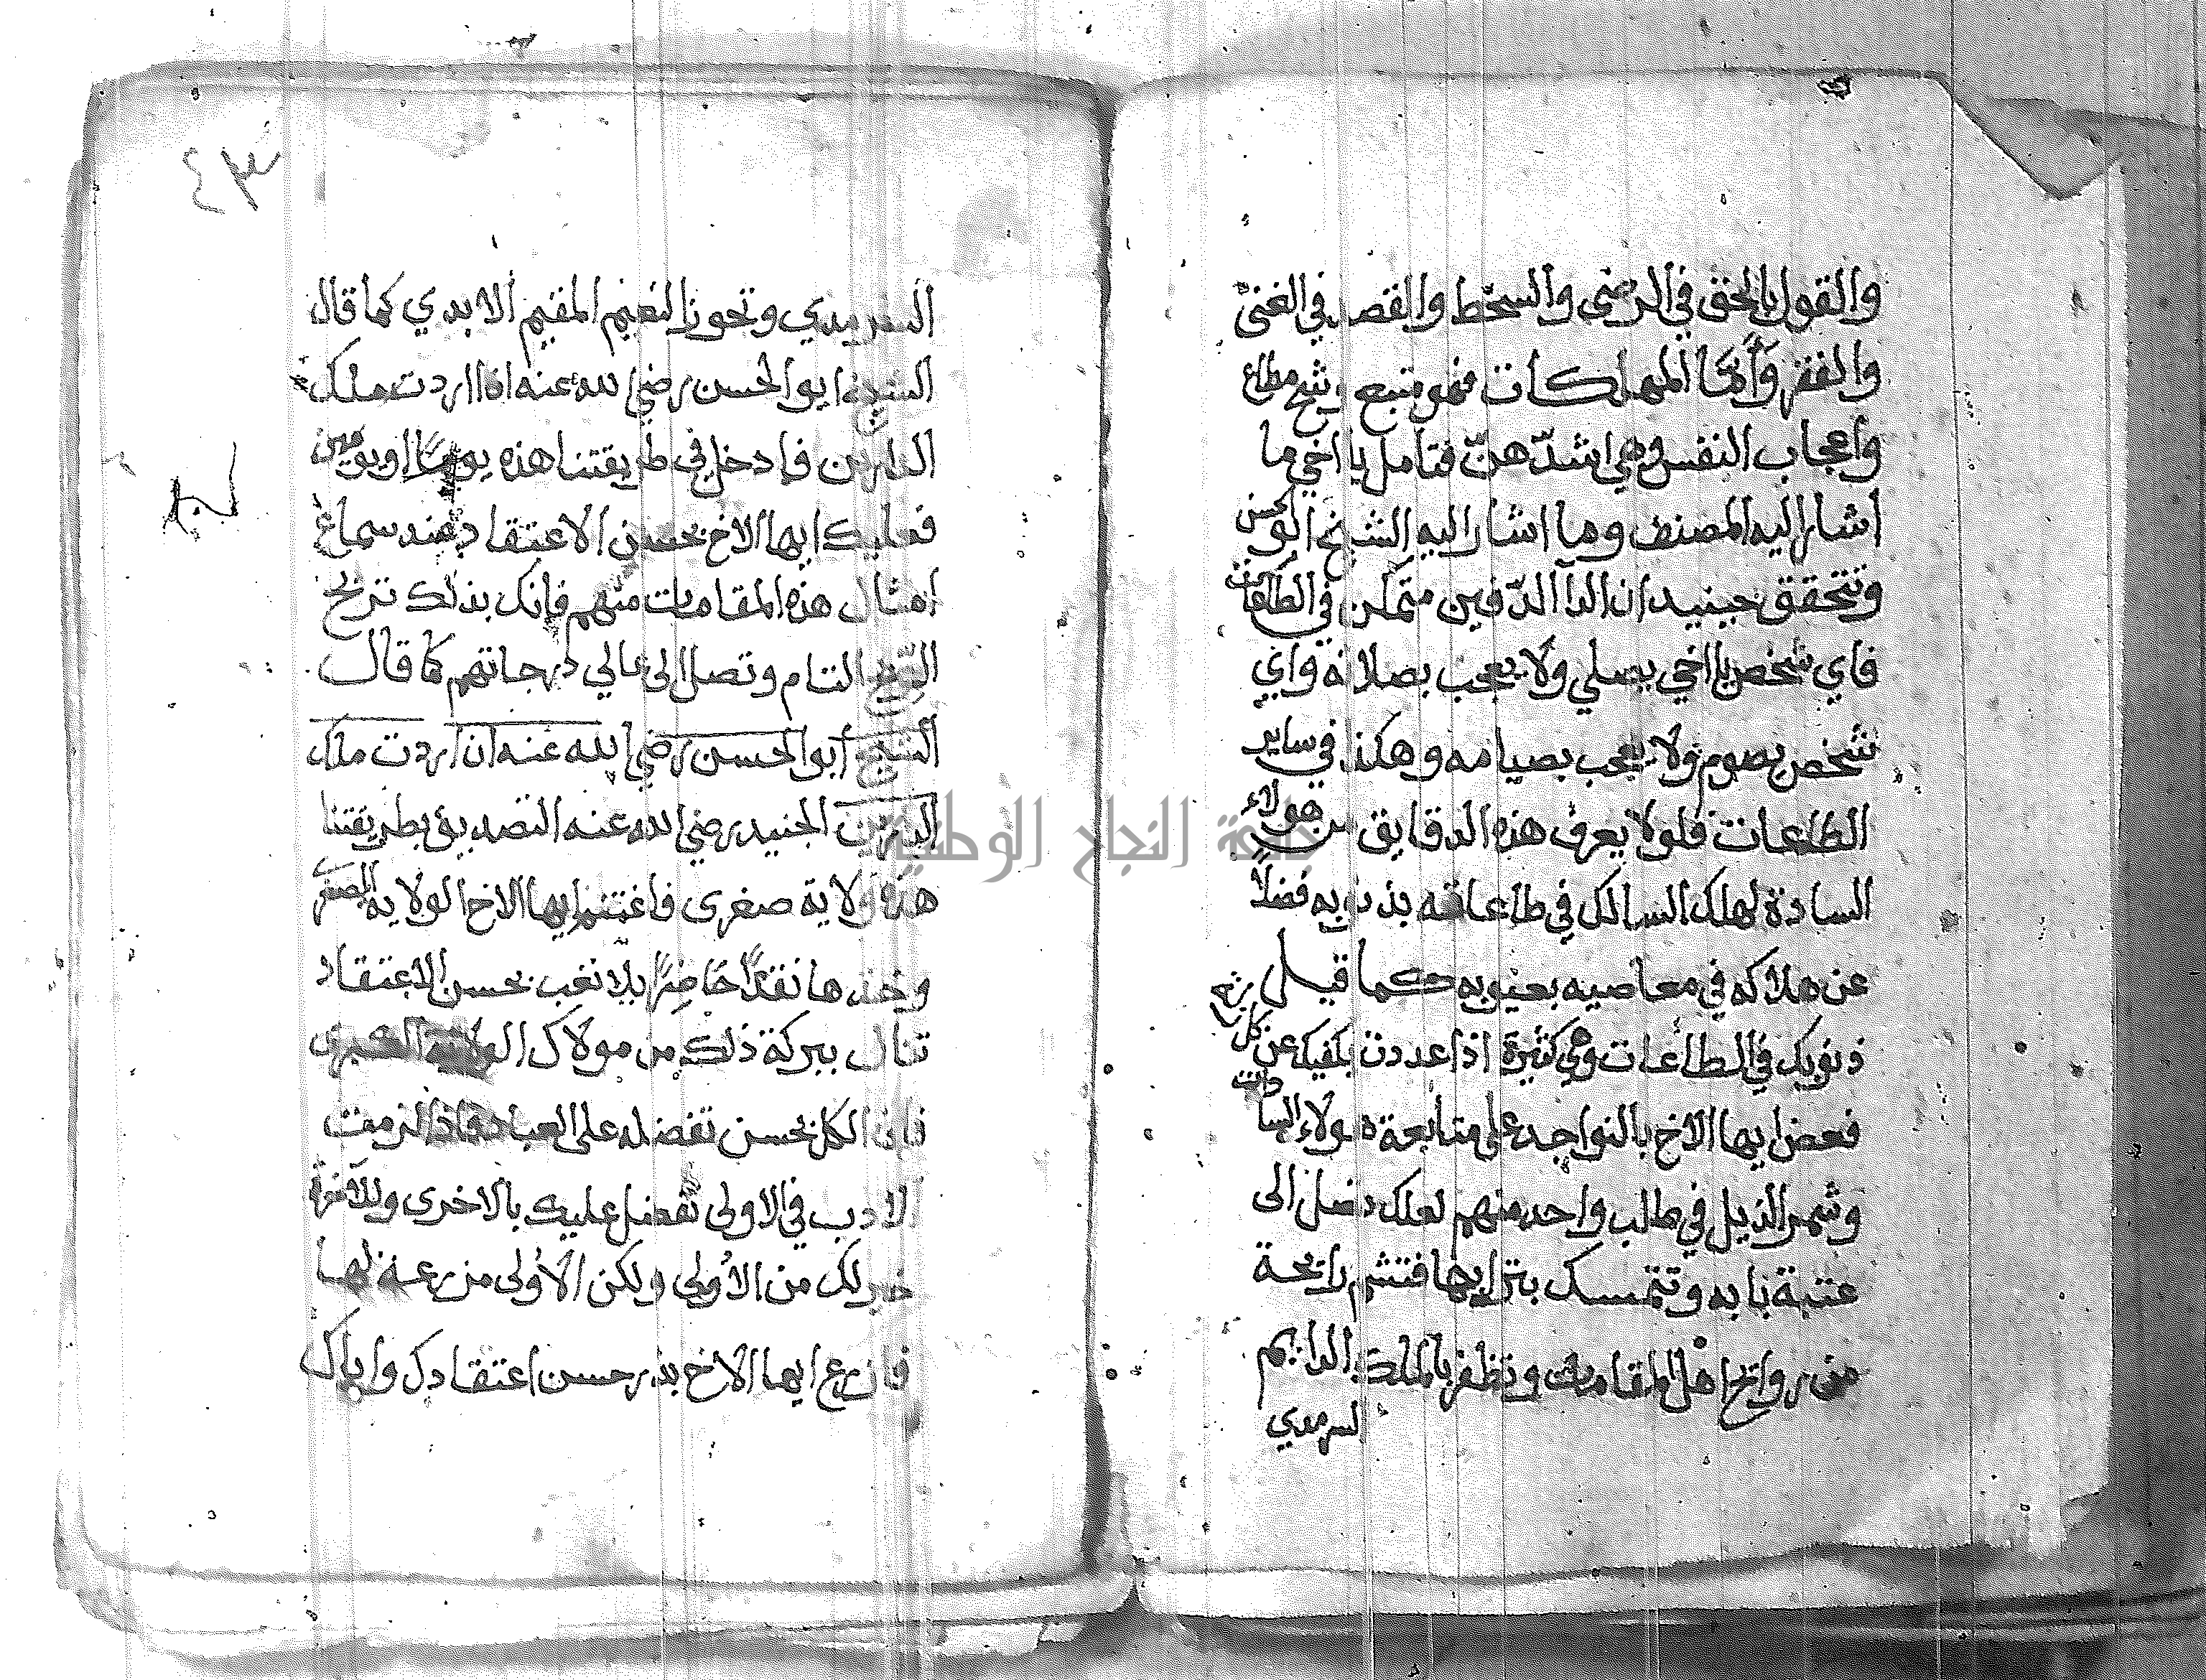 والقول بالحق في الرضى والسخط والقصد في الغنى
والفقر وأمّا المهلكات فهو متبع وشح مطاع
واعجاب النفس وهي اشدّ هنّ فتامل يا اخي ما
اشار اليه المصنف وما اشار اليه الشيخ ابو الحسن
وتتحقق حينيد ان الدا الدّفين متمكن في الطاعات
فاي شخص يا اخي يصلي ولا يعجب بصلاته واي
شخص يصوم ولا يعجب بصيامه وهكذا في ساير
الطاعات فلولا يعرف هذه الدقايق من هولاء
السادة لهلك السالك في طاعاته بذنوبه فضلاً
عن هلاكه في معاصيه بعيوبه كما قيل
ذنوبك في الطاعات وهي كثيرة اذا عددت تكفيك عن كل
فعض ايها الاخ بالنواجد على متابعة هولاء السادات
وشمر الذيل في طلب واحد منهم لعلك تصل الى
عتبة بابه وتتمسك بترابها فتشم رايحة
من روايح اهل المقامات وتظفر بالملك الدايم
السرمدي
السرمدي وتحوز النعيم المقيم الابدي كما قال
الشيخ ابو الحسن رضي الله عنه اذا اردت ملك
الدارين فادخل في طريقتنا هذه يومًا او يومين
فعليك ايها الاخ بحسن الاعتقاد عند سماع
امثال هذه المقامات منهم فانك بذلك تربح
الرّبح التام وتصل الى عالي درجاتهم كما قال
الشيخ أبو الحسن رضي الله عنه ان اردت ملك
الدارين الجنيد رضي الله عنه التصديق بطريقتنا
هذه ولاية صغرى فاغتنم ايها الاخ الولاية الصغرى
وخذها نقدًا حاضرًا بلا تعب بحسن الاعتقاد
تنال ببركة ذلك من مولاك الولاية الكبرى
فان الكل بحسن تفضله على العباد فاذا لزمت
الادب في الاولى تفضل عليك بالاخرى وللآخرة
خير لك من الأولى ولكن الأولى مزرعة لها
فازرع ايها الاخ بذر حسن اعتقادك واياك
٤٣
جامعة النجاح الوطنية